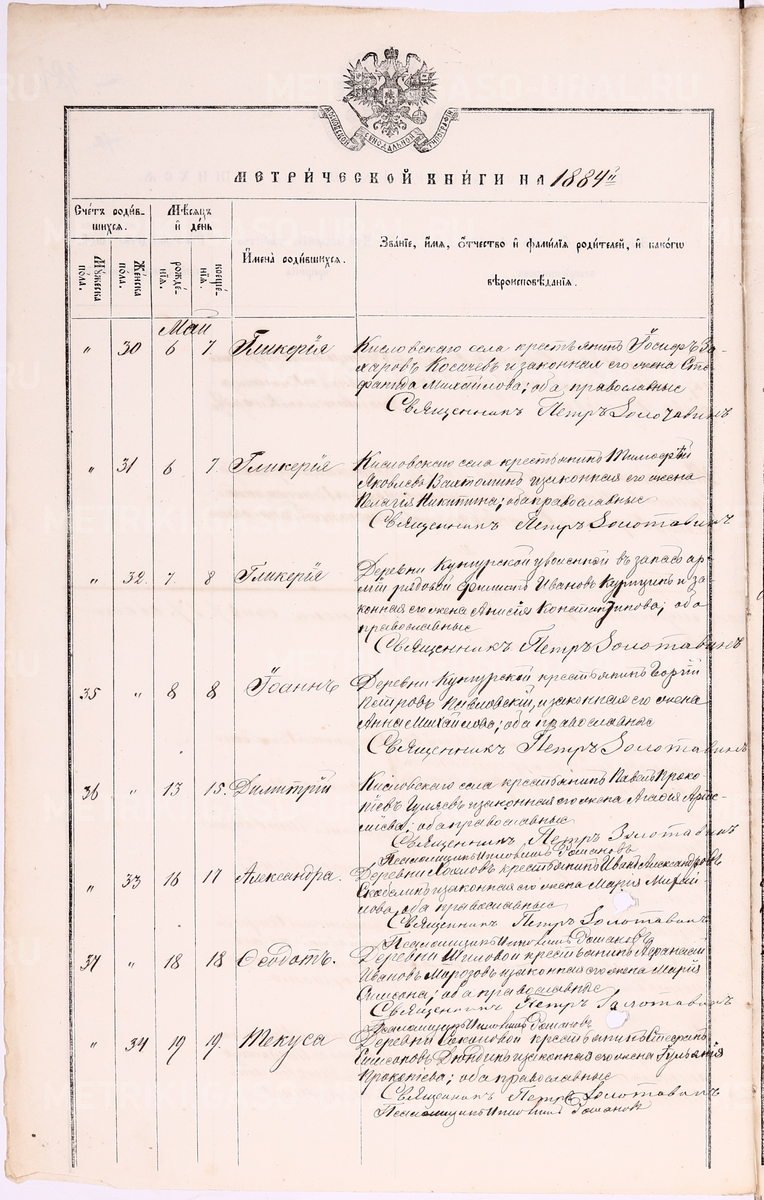 МОСКОВСКОЙ СѴНОДАЛЬНОЙ ТИПОГРАФІИ
МЕТРИ́ЧЕСКОЙ КНИ́ГИ НА 1884й
Сче́тъ роди́в-
шихся.
Мѣсяцъ
и де́нь
Имена̀ роди́вшихся.
Зва́нїе, и́мя, о́тчество и фами́лїя роди́телей, и како́гѡ
вѣроисповѣ́данїя.
Мꙋ́жеска по́ла.
Же́нска по́ла.
рожде́-нїя.
креще́-нїя.
Май
" 30 6 7 Гликерія Кисловскаго села крестьянинъ Іосифъ За-
харовъ Косачевъ и законная его жена Сте-
фанида Михайлова; оба православные
Священникъ Петръ Золотавинъ
" 31 6 7 Гликерія Кисловскаго села крестьянинъ Тимофей
Яковлевъ Вахтоминъ и законная его жена
Пелагія Никитина; оба православные
Священникъ Петръ Золотавинъ
" 32. 7. 8 Гликерія Деревни Кунгурской уволенной въ запасъ ар-
міи рядовой Филиппъ Ивановъ Курицинъ и за-
конная его жена Анисія Константинова; оба
православные
Священникъ Петръ Золотавинъ
35 " 8 8 Іоаннъ Деревни Кунгурской крестьянинъ Георгій
Петровъ Павловскій, и законная его жена
Анна Михайлова; оба православные
Священникъ Петръ Золотавинъ
36 " 13 15. Димитрій Кисловскаго села крестьянинъ Павелъ Проко-
піевъ Гуляевъ и законная его жена Агафія
оба православные
Священникъ Петръ Золотавинъ
Псаломщикъ Романовъ
" 33 16 17 Александра. Деревни крестьянинъ Иванъ Александровъ
Скобелинъ и законная его жена Марія Михай-
лова, оба православные
Священникъ Петръ Золотавинъ
Псаломщикъ Романовъ
37 " 18 18 Ѳеодотъ. Деревни Шиловой крестьянинъ Афанасій
Ивановъ Морозовъ и законная его жена Марія
Симеона; оба православные
Священникъ Петръ Золотавинъ
Псаломщикъ Романовъ
" 34 19 19. Текуса Деревни Соколовой крестьянинъ Стефанъ
Симеоновъ и законная его жена Гуліанія
Прокопіева; оба православные
Священникъ Петръ Золотавинъ
Псаломщикъ Романовъ